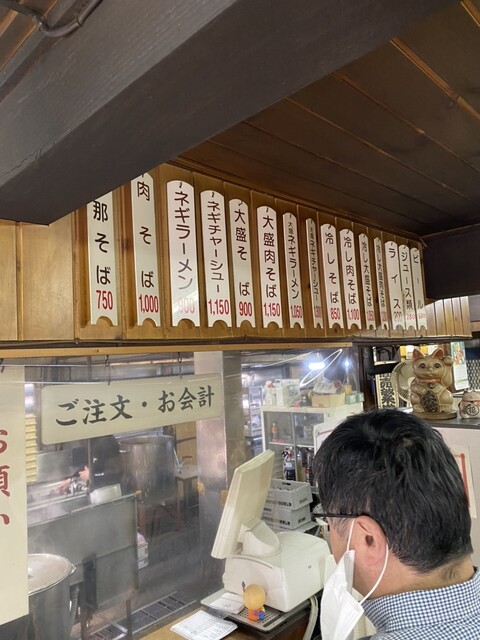 那そば 750
肉そば 1,000
ネギラーメン 900
ネギチャーシュー 1,150
大盛そば 900
大盛肉そば 1,150
大盛ネギラーメン 1,050
大盛ネギチャーシュー 1,300
冷しそば 850
冷し肉そば 1,100
冷し大盛そば
冷し大盛肉そば
ライス 200
ジュース類
ビール
ご注文・お会計
お願い